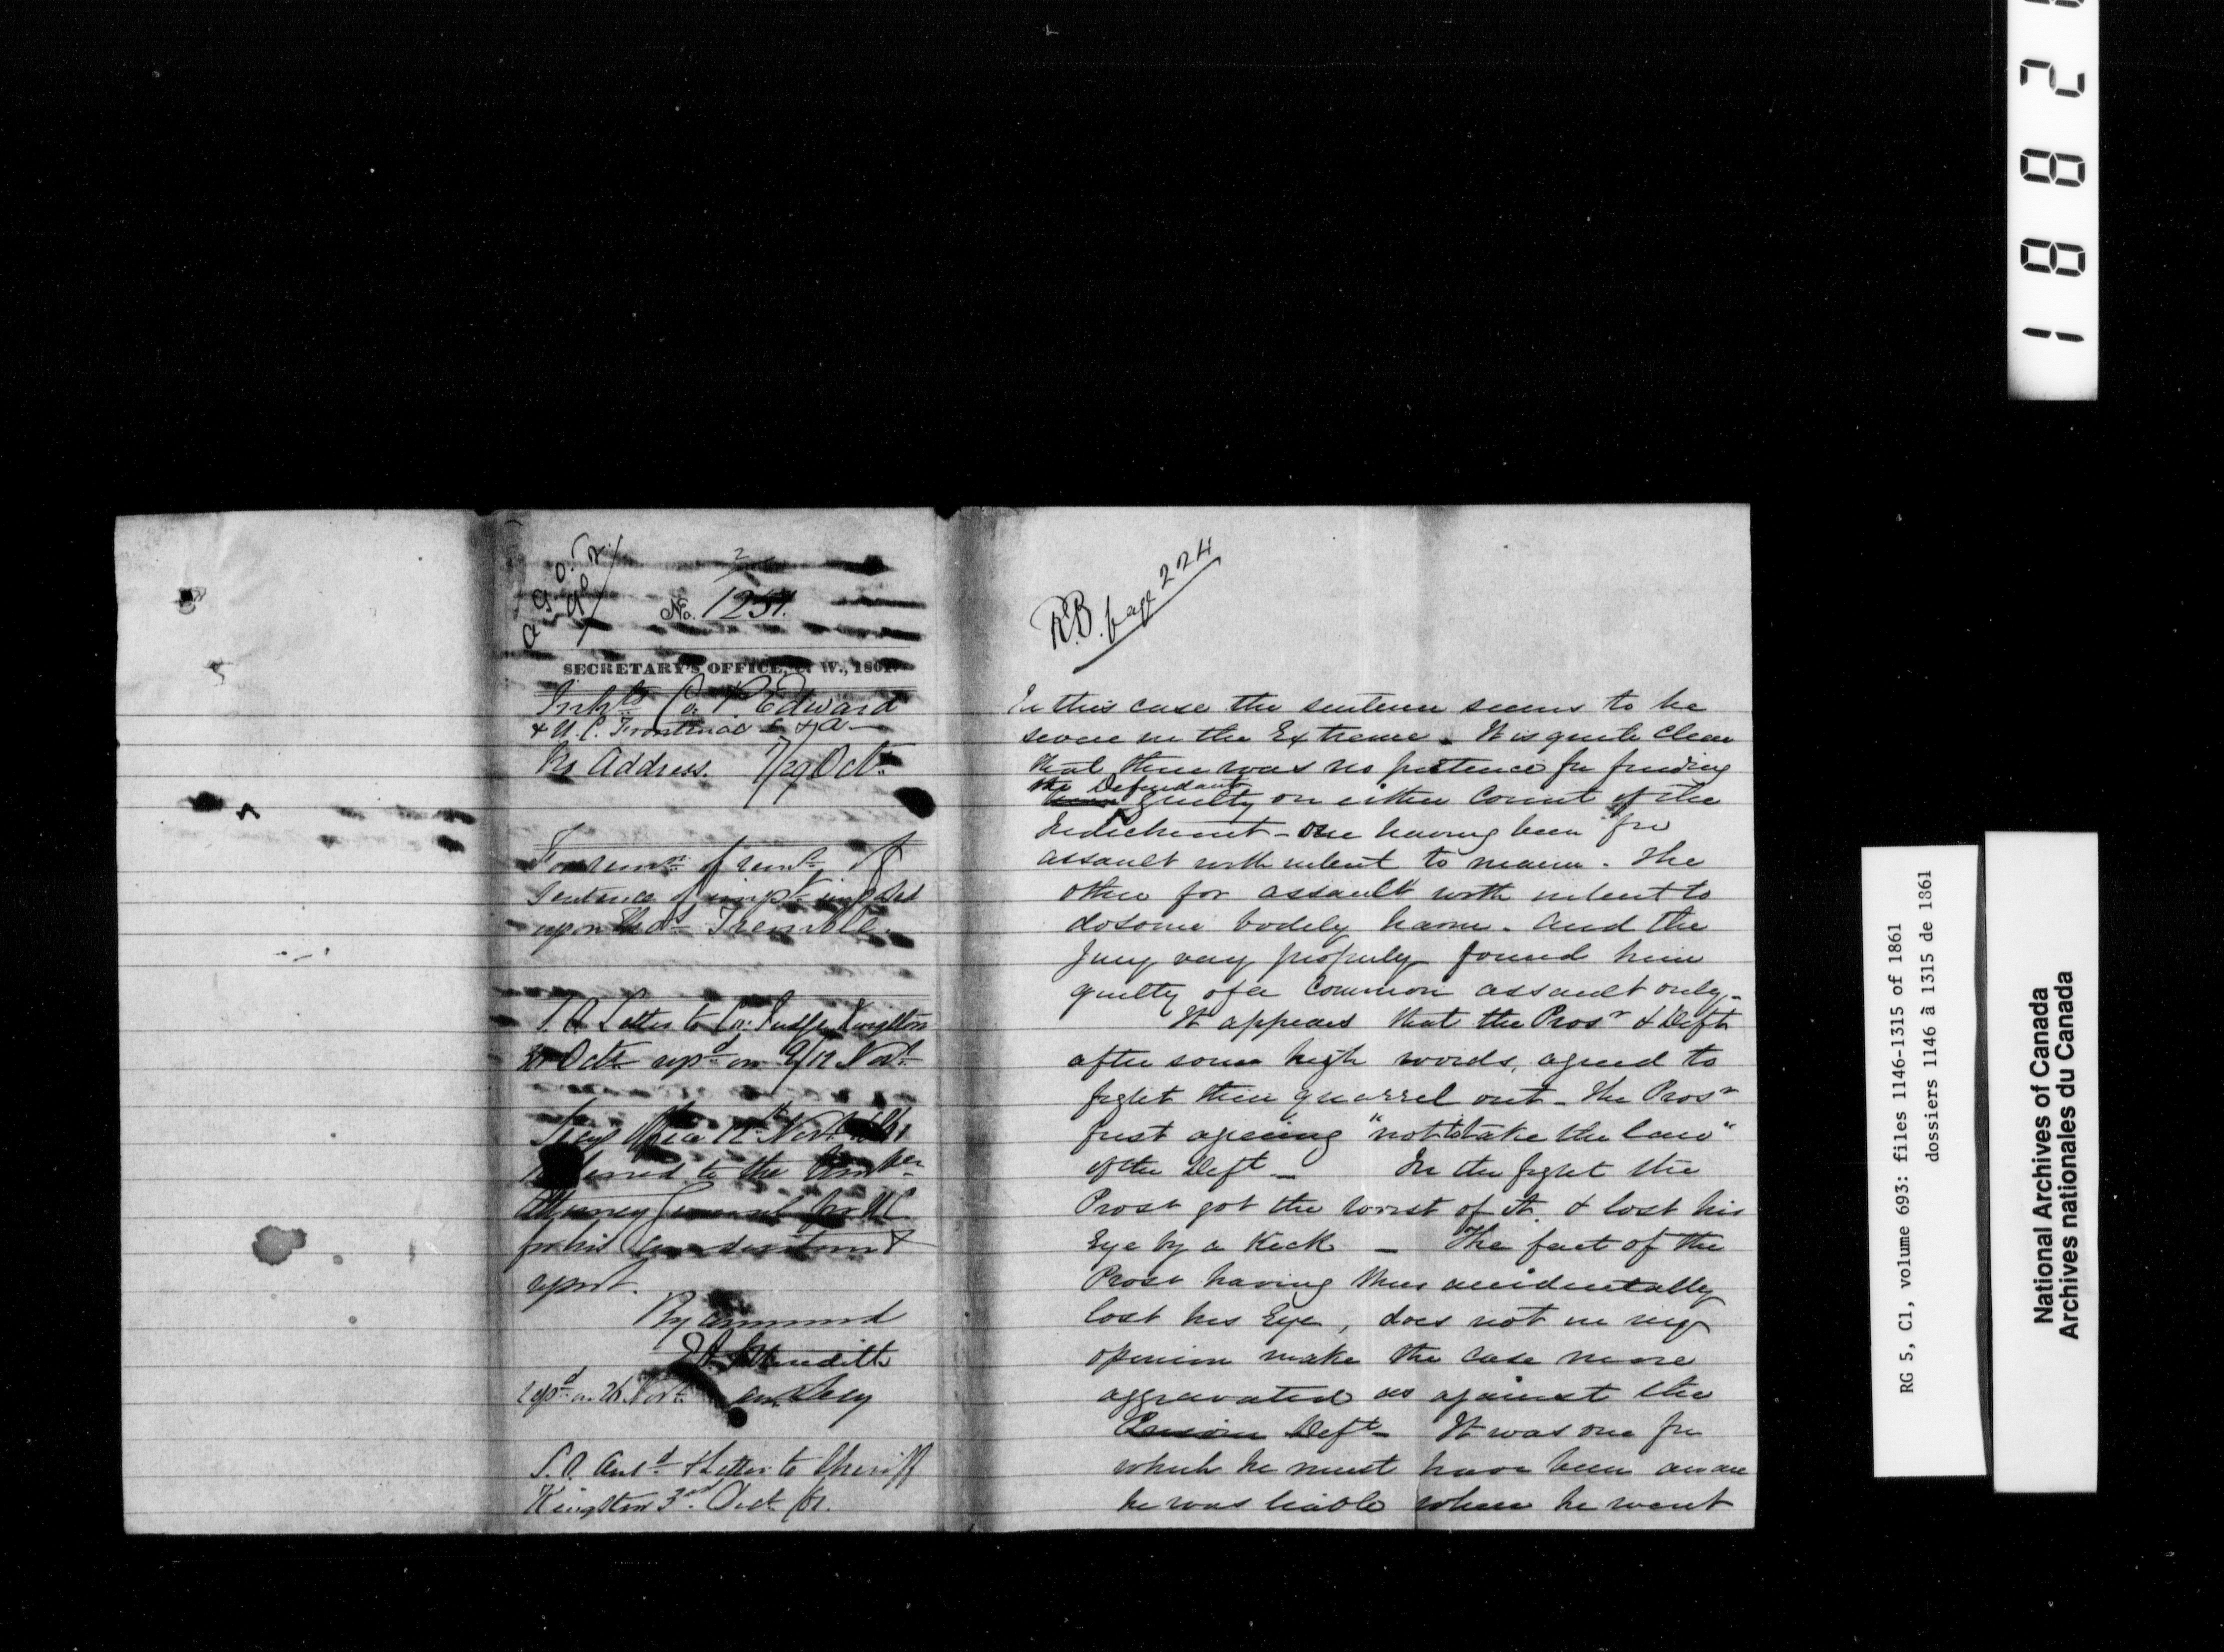 No. 1251.
SECRETARY'S OFFICE, C. W., 1861.
Inhts Co. P. Edward
& U. C. Frontenac L & A
No Address. 7/29 Octr
For remn of remr of
sentence of imprt imposed
upon Thos Tremble.
S. O. Letter to Co. Judge Kingston
Octr repd on 9/12 Novr
Secy's Office 12th Novr 1861
Referred to the Honble
Attorney General for UC
for his consideration &
report.
By command
E A Meredith
repd on 26 Novr Asst Secy
S. O. Ansd & Letter to Sheriff
Kingston 3rd Dect /61.
R.B. page 224
In this case the sentence seems to be
severe in the Extreme. It is quite clear
that there was no pretence for finding
the Defendant guilty on either Count of the
Indictment - one having been for
assault with intent to maim. The
other for assault with intent to
do some bodily harm. And the
Jury very properly found him
guilty of a Common assault only.
It appears that the Prosr & Deft
after some high words, agreed to
fight their quarrel out - the Prosr
first agreeing "not to take the law"
of the Deft - In the fight the
Prosr got the worst of it & lost his
Eye by a Kick - The fact of the
Prosr having thus accidentally
lost his Eye, does not in my
opinion make the case more
aggravated as against the
Deft - It was one for
which he must have been aware
he was liable when he went
18821
RG 5, C1, volume 693: files 1146-1315 of 1861
dossiers 1146 à 1315 de 1861
National Archives of Canada
Archives nationales du Canada